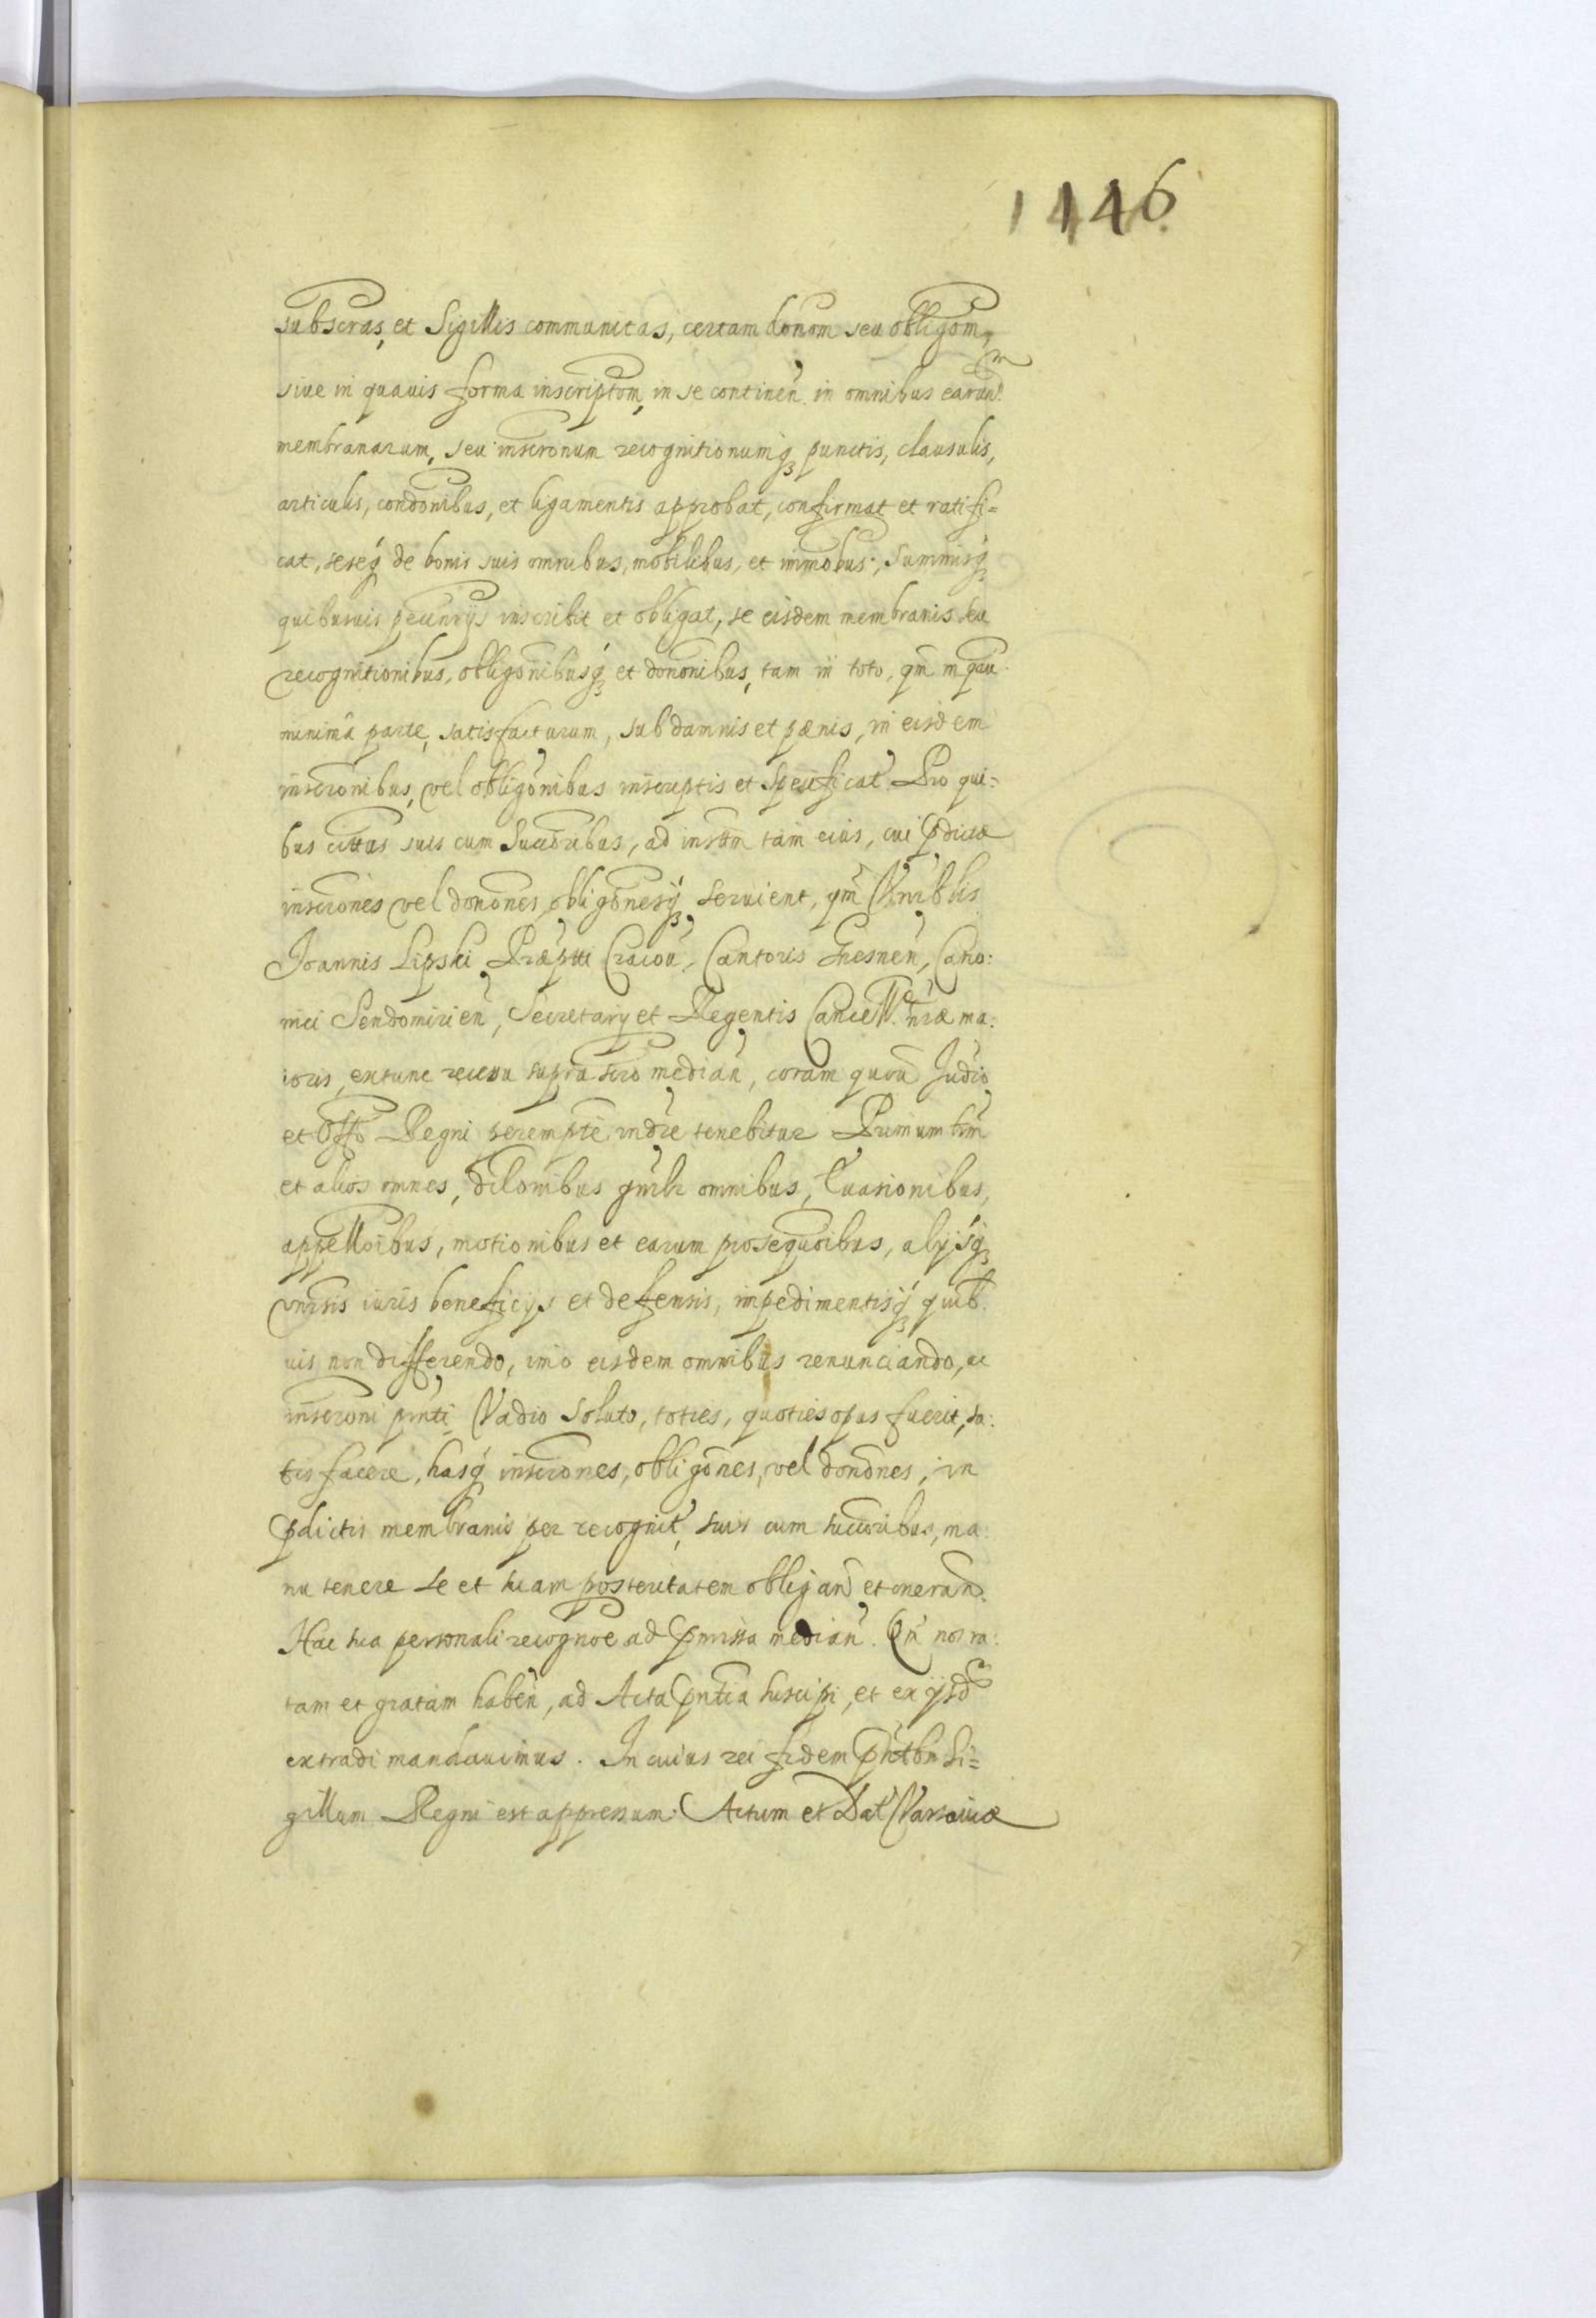 1446
subscras, et Sigillis communitas, certam donom seu obligom,
siue in quauis forma inscriptom, in se continen. in omnibus earund.
membranarum, seu inscronum recognitionumq punctis, clausulis,
articulis, condonibus, et ligamentis approbat, confirmat et ratifi=
cat, seseq de bonis suis omnibus, mobilibus, et immobus, Summisq
quibusuis pecunijs inscribit et obligat, se eisdem membranis seu
recognitionibus, obligonibusq et dononibus, tam in toto, qm in qau
minima parte, satisfacturum, sub damnis et pœnis, in eisdem
inscronibus, vel obligonibus inscriptis et Specificat. Pro qui=
bus cittus suis cum Succoribus, ad instm tam eius, cui pdictæ
inscrones vel donones obligonesq seruient, qm Vnrblis
Joannis Lipski Præptti Cracou, Cantoris Gnesnen, Cano:
nici Sendomirien, Secretarij et Regentis Cancell. nræ ma:
ioris, extunc recessu supra scro median, coram quouis Judio
et Offo Regni perempte indre tenebitur Primum tm
et alios omnes, dilonibus gnrlr omnibus, Euasionibus,
appelloibus, motionibus et earum prosequoibus, alijsq
vnrsis iuris beneficijs et defensis, impedimentisq quib.
uis non differendo, imo eisdem omnibus renunciando, ac
inscroni pnti Vadio soluto, toties, quoties opus fuerit, sa:
tisfacere, hasq inscrones, obligones, vel donones, in
pdictis membranis per recognit, suis cum succoribus, ma:
nu tenere se et suam posteritatem obligan et oneran.
Hac sua personali recognoe ad pmissa median. Qm nos ra:
tam et gratam haben, ad Acta pntia suscipi, et ex ijsd
extradi mandauimus. In cuius rei fidem pntbn Si=
gillum Regni est appressum. Actum et Dat Varsauiæ